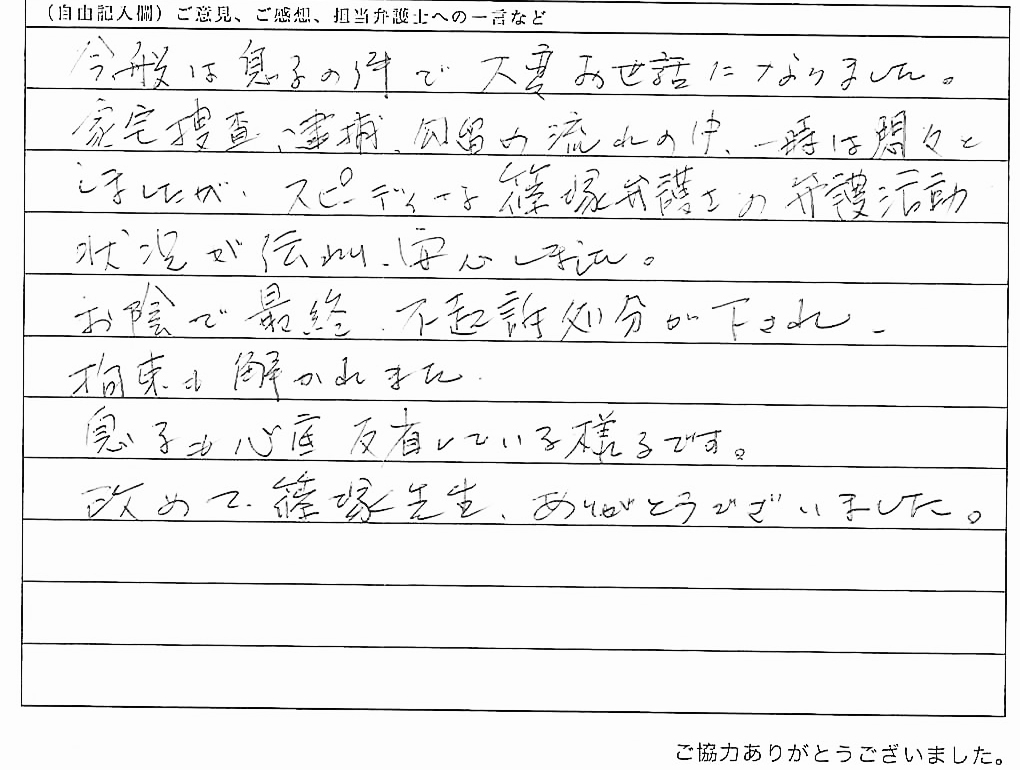 （自由記入欄）ご意見、ご感想、担当弁護士への一言など
今般は息子の件で大変お世話になりました。
家宅捜査、逮捕、勾留の流れの中、一時は悶々と
しましたが、スピーディーな篠塚弁護士の弁護活動
状況が伝われ、安心しました。
お陰で最終、不起訴処分が下され、
拘束も解かれました。
息子も心底反省している様子です。
改めて、篠塚先生、ありがとうございました。
ご協力ありがとうございました。